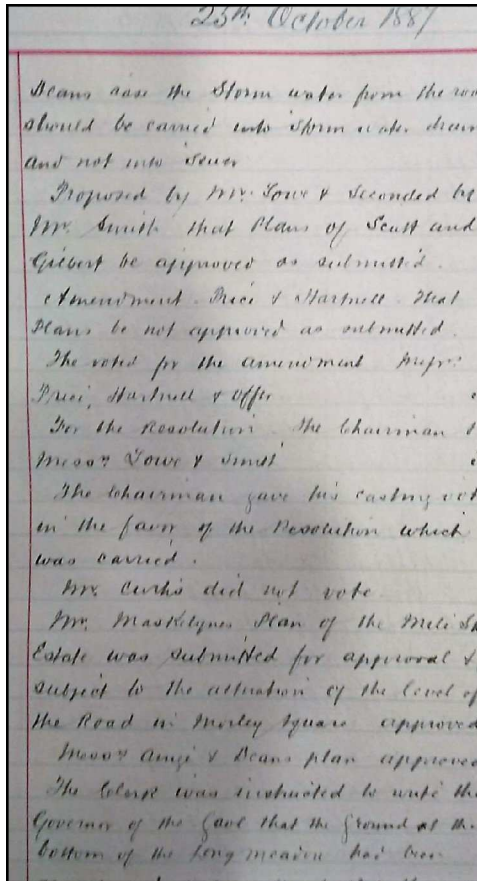 25th October 1887
Beans case the Storm water from the roo
should be carried into Storm water drain
and not into Sewer
Proposed by Mr. Lowe & Seconded by
Mr. Smith that Plans of Scutt and
Gilbert be approved as submitted.
Amendment. Price & Hartnell. That
Plans be not approved as submitted.
The voted for the amendment Messrs
Price, Hartnell & Offer
For the Resolution the Chairman &
Messrs Lowe & Smith
The Chairman gave his casting vot
in the favor of the Resolution which
was carried.
Mr. Curtis did not vote.
Mr. Maskelynes Plan of the
Estate was submitted for approval &
subject to the alteration of the level of
the Road in Morley Square approved
Messrs & Beans plan approved
The Clerk was instructed to write the
Governor of the Gaol that the ground at the
bottom of the long meadow had been